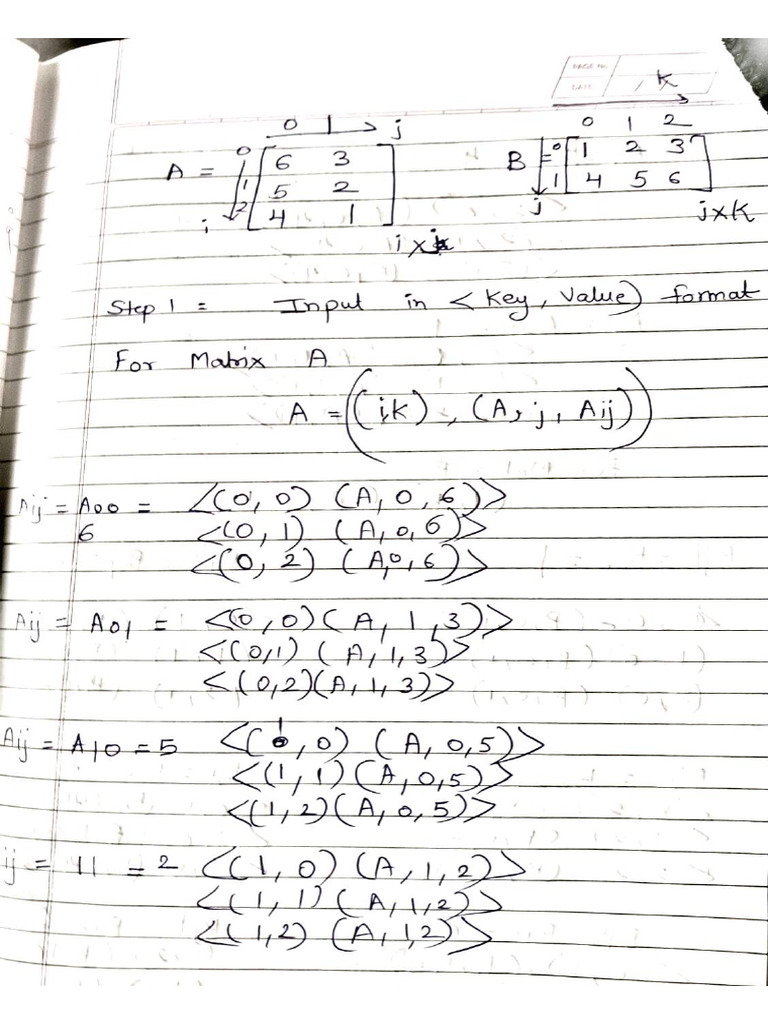 PAGE No.
DATE
K
0 1 → j
0 1 2
A = 0 [ 6 3 ]
1 [ 5 2 ]
i 2 [ 4 1 ]
i x j
B = 0 [ 1 2 3 ]
j 1 [ 4 5 6 ]
j x K
Step 1 = Input in < Key, Value) format
For Matrix A
A = ((i,k), (A, j, Aij))
Aij = A00 = <(0,0) (A,0,6)>
6 <(0,1) (A,0,6)>
<(0,2) (A,0,6)>
Aij = A01 = <(0,0)(A,1,3)>
<(0,1) (A,1,3)>
<(0,2)(A,1,3)>
Aij = A10 = 5 <(1,0) (A,0,5)>
<(1,1)(A,0,5)>
<(1,2)(A,0,5)>
ij = 11 = 2 <(1,0) (A,1,2)>
<(1,1) (A,1,2)>
<(1,2) (A,1,2)>